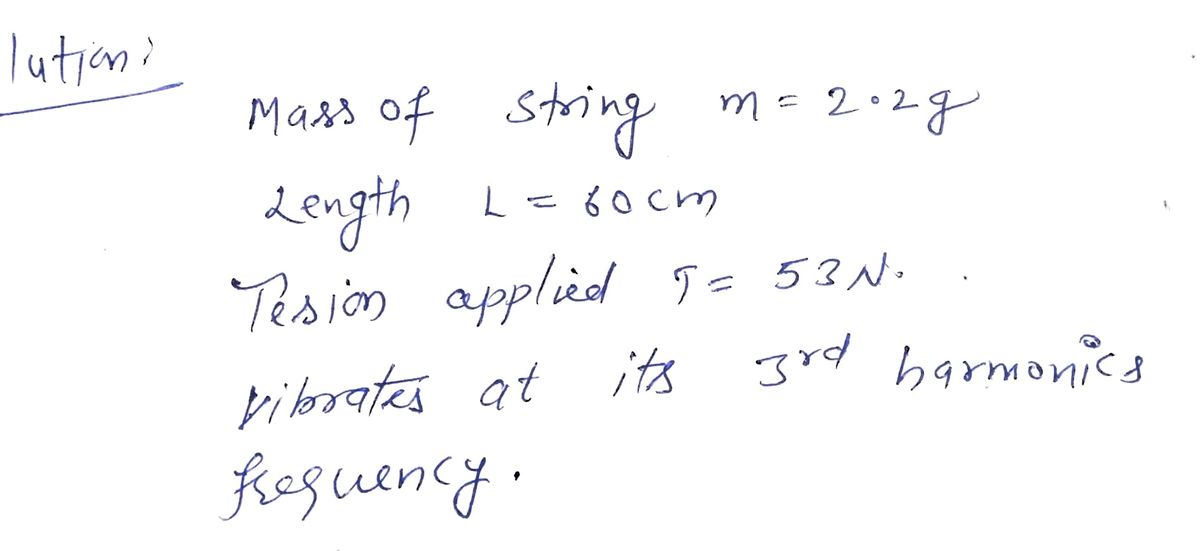 lution:
Mass of string m = 2.2g
Length L = 60cm
Tesion applied T = 53N.
vibrates at its 3rd harmonics
frequency.